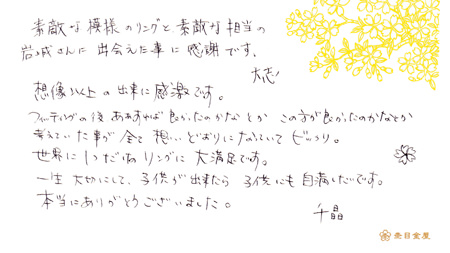 素敵な模様のリングと素敵な担当の
岩城さんに出会えた事に感謝です、
大志
想像以上の出来に感激です。
フィッティングの後 ああすれば良かったのかなとか この方が良かったのかなとか
考えていた事が全て想いどおりになっていてビックリ。
世界に1つだけのリングに大満足です。
一生大切にして、子供が出来たら子供にも自慢したいです。
本当にありがとうございました。
千晶
杢目金屋